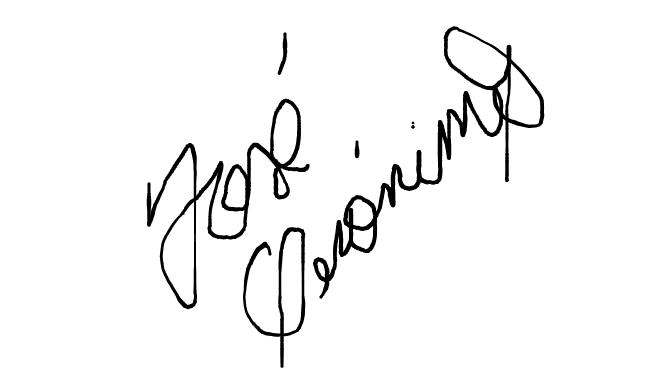 José
Gerónimo